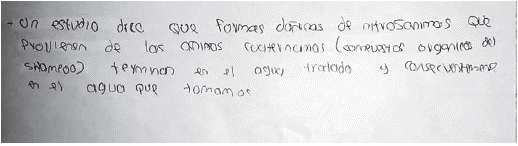 - Un estudio dice que formas dañinas de nitrosaminas que
provienen de las aminas cuaternarias (compuestos organicos del
shampoo) terminan en el agua tratada y consecuentemente
en el agua que tomamos